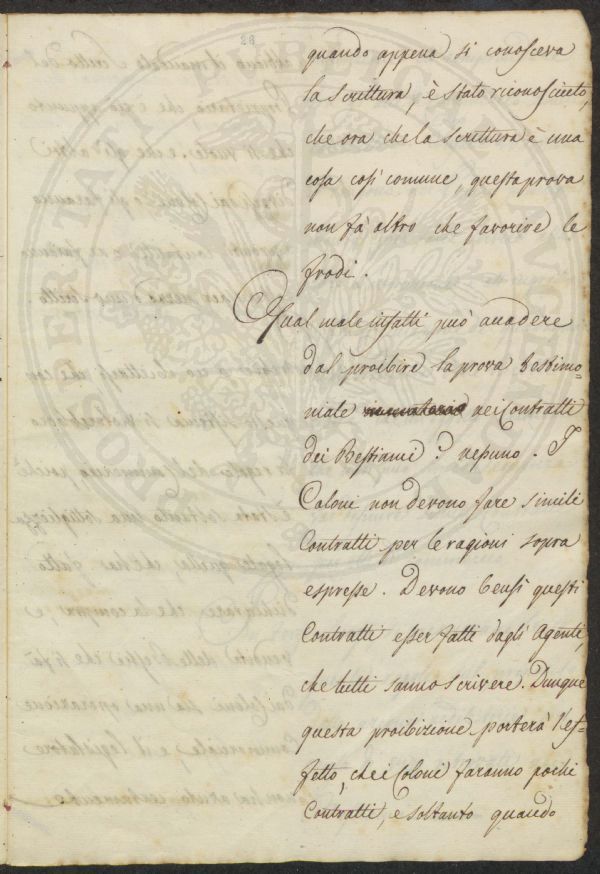 28
quando appena si conosceva
la scrittura, è stato riconosciuto,
che ora che la scrittura è una
cosa così comune, questa prova
non fà altro che favorire le
frodi.
Qual male infatti può accadere
dal proibire la prova testimo-
niale nei Contratti
dei Bestiami? nessuno. I
Coloni non devono fare simili
Contratti per le ragioni sopra
espresse. Devono bensì questi
Contratti esser fatti dagli Agenti,
che tutti sanno scrivere. Dunque
questa proibizione porterà l'ef-
fetto, che i Coloni faranno pochi
Contratti, e soltanto quando